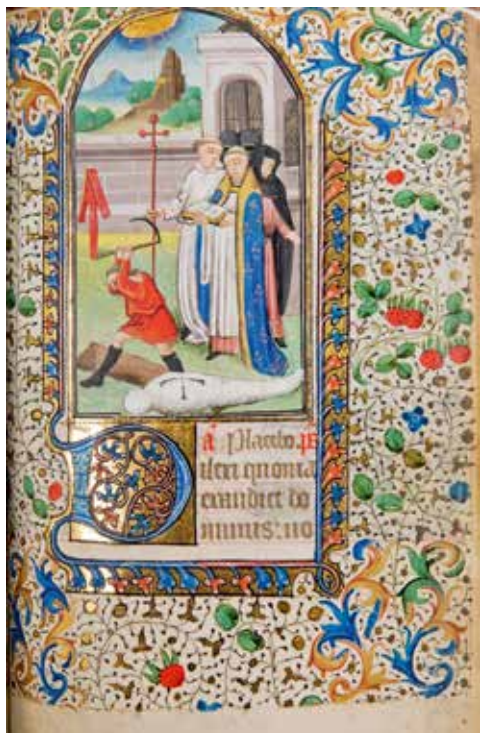 a. Placebo. ps
Dilexi quonia
exaudiet do
minus: uo